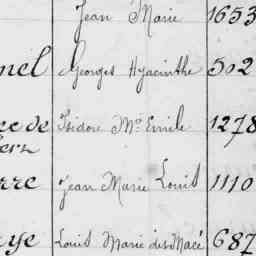 Jean Marie 1653
nel Georges Hyacinthe 502
ee de Isidore Mie Emile 1278
erre Jean Marie Louis 1110
ye Louis Marie des Macé 687